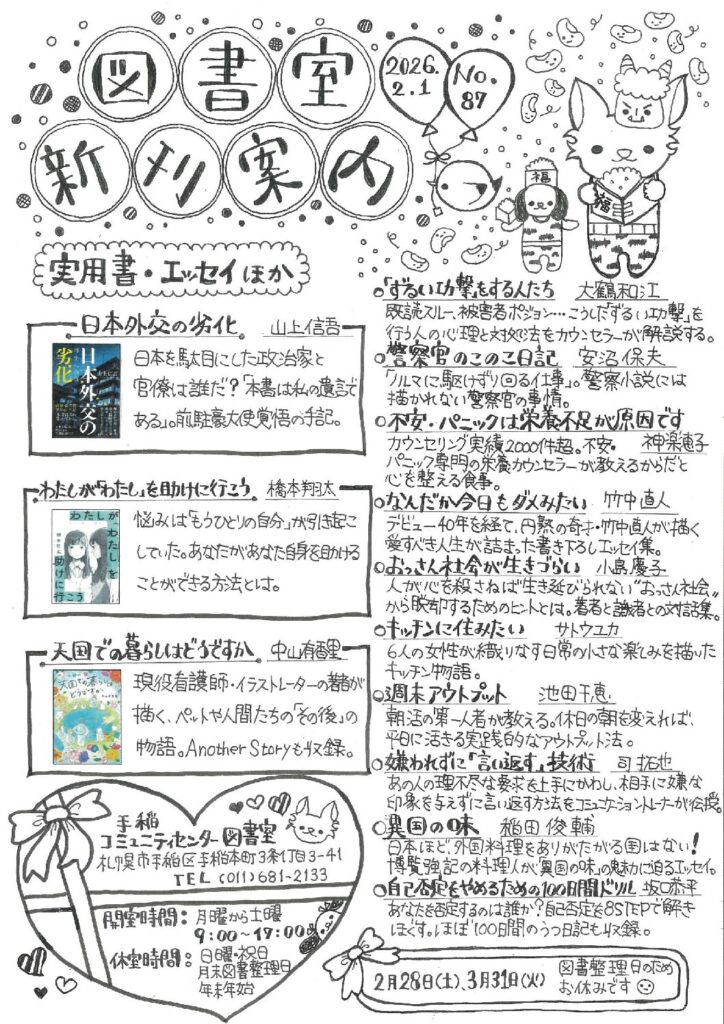 図書室
新刊案内
2026.
2.1
No.
87
福
福
実用書・エッセイほか
日本外交の劣化 山上信吾
日本外交の
劣化
日本を駄目にした政治家と
官僚は誰だ？「本書は私の遺言で
ある」。前駐豪大使覚悟の手記。
わたしが「わたし」を助けに行こう 橋本翔太
わたしが、
「わたし」を
助けに
行こう
悩みは「もうひとりの自分」が引き起こ
していた。あなたがあなた自身を助ける
ことができる方法とは。
天国での暮らしはどうですか 中山有香里
天国での暮らしは
どうですか
現役看護師・イラストレーターの著者が
描く、ペットや人間たちの「その後」の
物語。Another Storyも収録。
手稲
コミュニティセンター図書室
札幌市手稲区手稲本町3条1丁目3-41
TEL (011)681-2133
開室時間： 月曜から土曜
9:00～17:00
休室時間： 日曜・祝日
月末図書整理日
年末年始
「ずるい攻撃」をする人たち 大鶴和江
既読スルー、被害者ポジション…こうした「ずるい攻撃」を
行う人の心理と対処法をカウンセラーが解説する。
警察官のこのこ日記 安沼保夫
「クルマに駆けずり回る仕事」。警察小説には
描かれない警察官の事情。
不安・パニックは栄養不足が原因です
カウンセリング実績2000件超。不安・ 神楽恵子
パニック専門の栄養カウンセラーが教えるからだと
心を整える食事。
なんだか今日もダメみたい 竹中直人
デビュー40年を経て、円熟の奇才・竹中直人が描く
愛すべき人生が詰まった書き下ろしエッセイ集。
おっさん社会が生きづらい 小島慶子
人が心を殺さねば生き延びられない"おっさん社会"
から脱却するためのヒントとは。著者と識者との対話集。
キッチンに住みたい サトウユカ
6人の女性が織りなす日常の小さな楽しみを描いた
キッチン物語。
週末アウトプット 池田千恵
朝活の第一人者が教える。休日の朝を変えれば、
平日に活きる実践的なアウトプット法。
嫌われずに「言い返す」技術 司拓也
あの人の理不尽な要求を上手にかわし、相手に嫌な
印象を与えずに言い返す方法をコミュニケーショントレーナーが伝授。
異国の味 稲田俊輔
日本ほど、外国料理をありがたがる国はない！
博覧強記の料理人が、「異国の味」の魅力に迫るエッセイ。
自己否定をやめるための100日間ドリル 坂口恭平
あなたを否定するのは誰か？自己否定を8STEPで解き
ほぐす。ほぼ100日間のうつ日記も収録。
2月28日(土)、3月31日(火) 図書整理日のため
お休みです